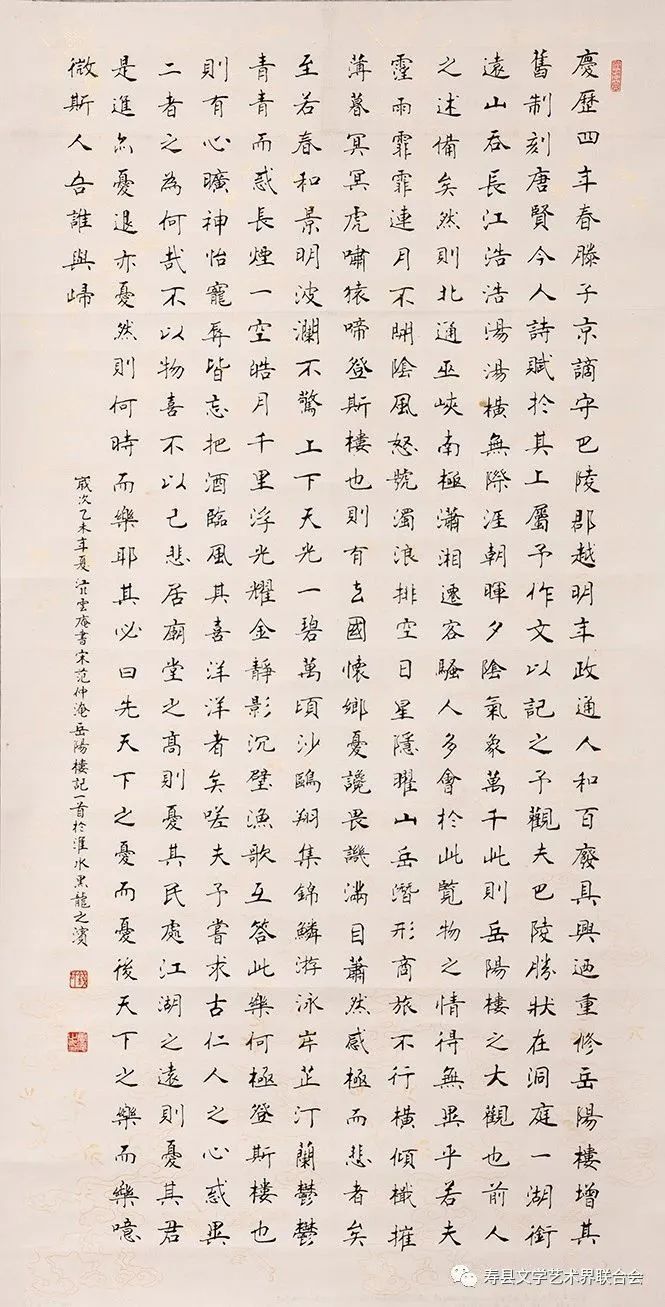 慶歷四年春滕子京謫守巴陵郡越明年政通人和百廢具興迺重修岳陽樓增其
舊制刻唐賢今人詩賦於其上屬予作文以記之予觀夫巴陵勝狀在洞庭一湖銜
遠山吞長江浩浩湯湯橫無際涯朝暉夕陰氣象萬千此則岳陽樓之大觀也前人
之述備矣然則北通巫峽南極瀟湘遷客騷人多會於此覽物之情得無異乎若夫
霪雨霏霏連月不開陰風怒號濁浪排空日星隱曜山岳潛形商旅不行橫傾檝摧
薄暮冥冥虎嘯猿啼登斯樓也則有去國懷鄉憂讒畏譏滿目蕭然感極而悲者矣
至若春和景明波瀾不驚上下天光一碧萬頃沙鷗翔集錦鱗游泳岸芷汀蘭鬱鬱
青青而惑長煙一空皓月千里浮光耀金靜影沉璧漁歌互答此樂何極登斯樓也
則有心曠神怡寵辱皆忘把酒臨風其喜洋洋者矣嗟夫予嘗求古仁人之心惑異
二者之為何哉不以物喜不以己悲居廟堂之高則憂其民處江湖之遠則憂其君
是進亦憂退亦憂然則何時而樂耶其必曰先天下之憂而憂後天下之樂而樂噫
微斯人吾誰與歸
歲次乙未年夏雲庵書宋范仲淹岳陽樓記一首於淮水黑龍之濱
寿县文学艺术界联合会